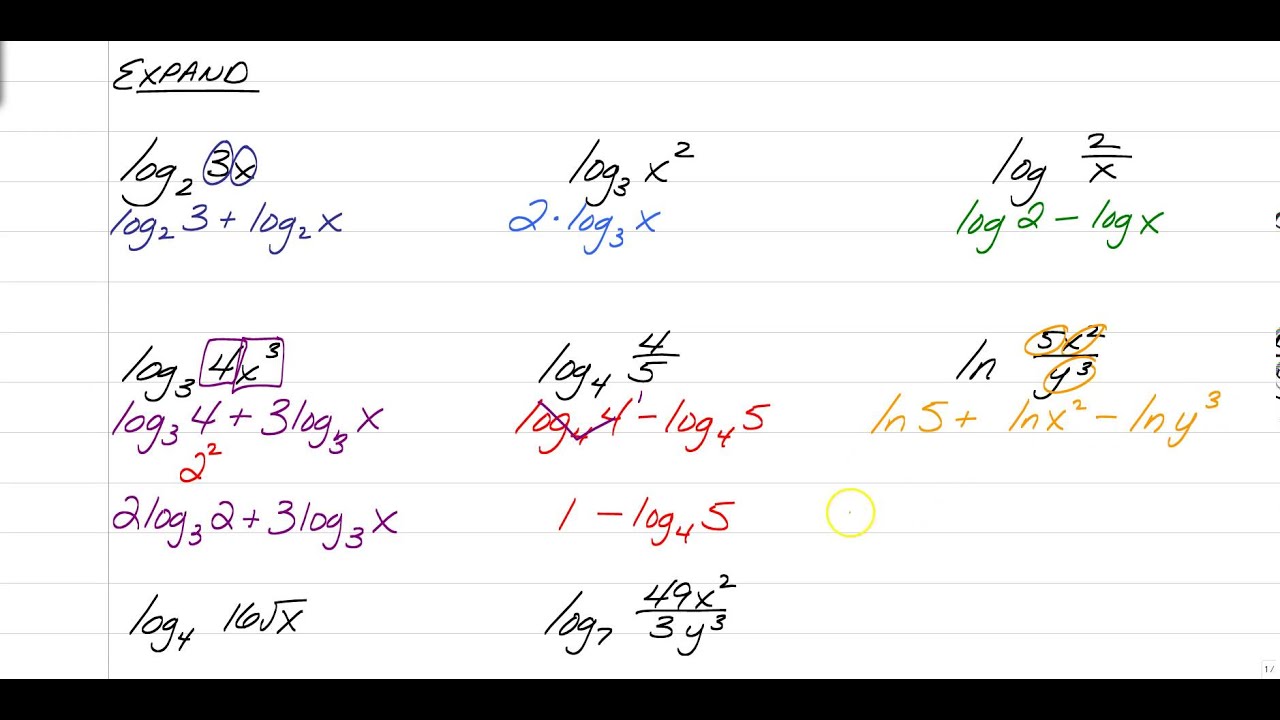 EXPAND
log₂ 3x
log₂ 3 + log₂ x
log₃ x²
2 · log₃ x
log 2/x
log 2 − log x
log₃ 4x³
log₃ 4 + 3 log₃ x
2²
2 log₃ 2 + 3 log₃ x
log₄ 4/5
log₄ 4 − log₄ 5
1
1 − log₄ 5
ln 5x²/y³
ln 5 + ln x² − ln y³
log₄ 16√x
log₇ 49x²/3y³